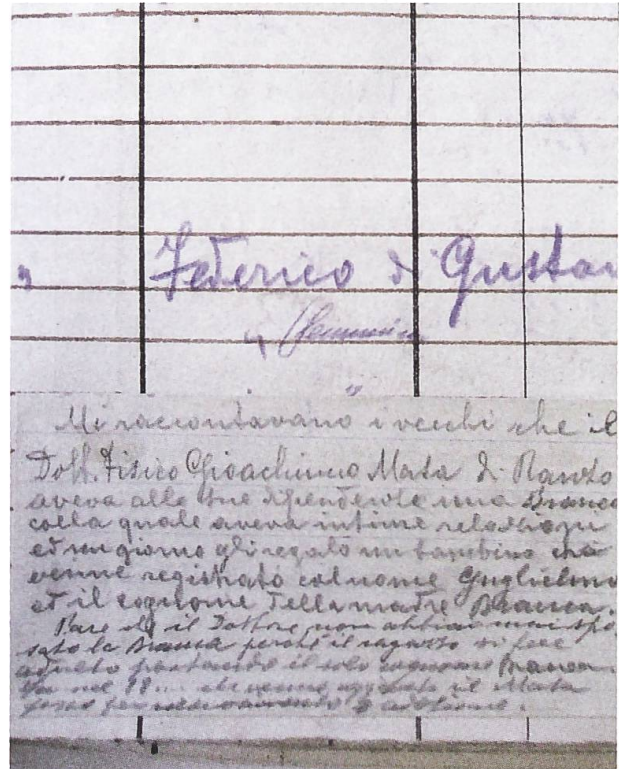 " Federico di Gustav
"
"
Mi raccontavano i vecchi che il
Dott. Fisico Gioachimo Mata di Ranzo
aveva alle sue dipendente una Branca
colla quale aveva intime relazioni
ed un giorno gli regalò un bambino che
venne registrato col nome Guglielmo
ed il cognome della madre Branca.
Pare che il Dottore non abbia mai spo
sato la Branca perché il ragazzo si fece
adulto portando il solo cognome Branca
nel 18.... che venne aggiunto il Mata
forse per o adozione.